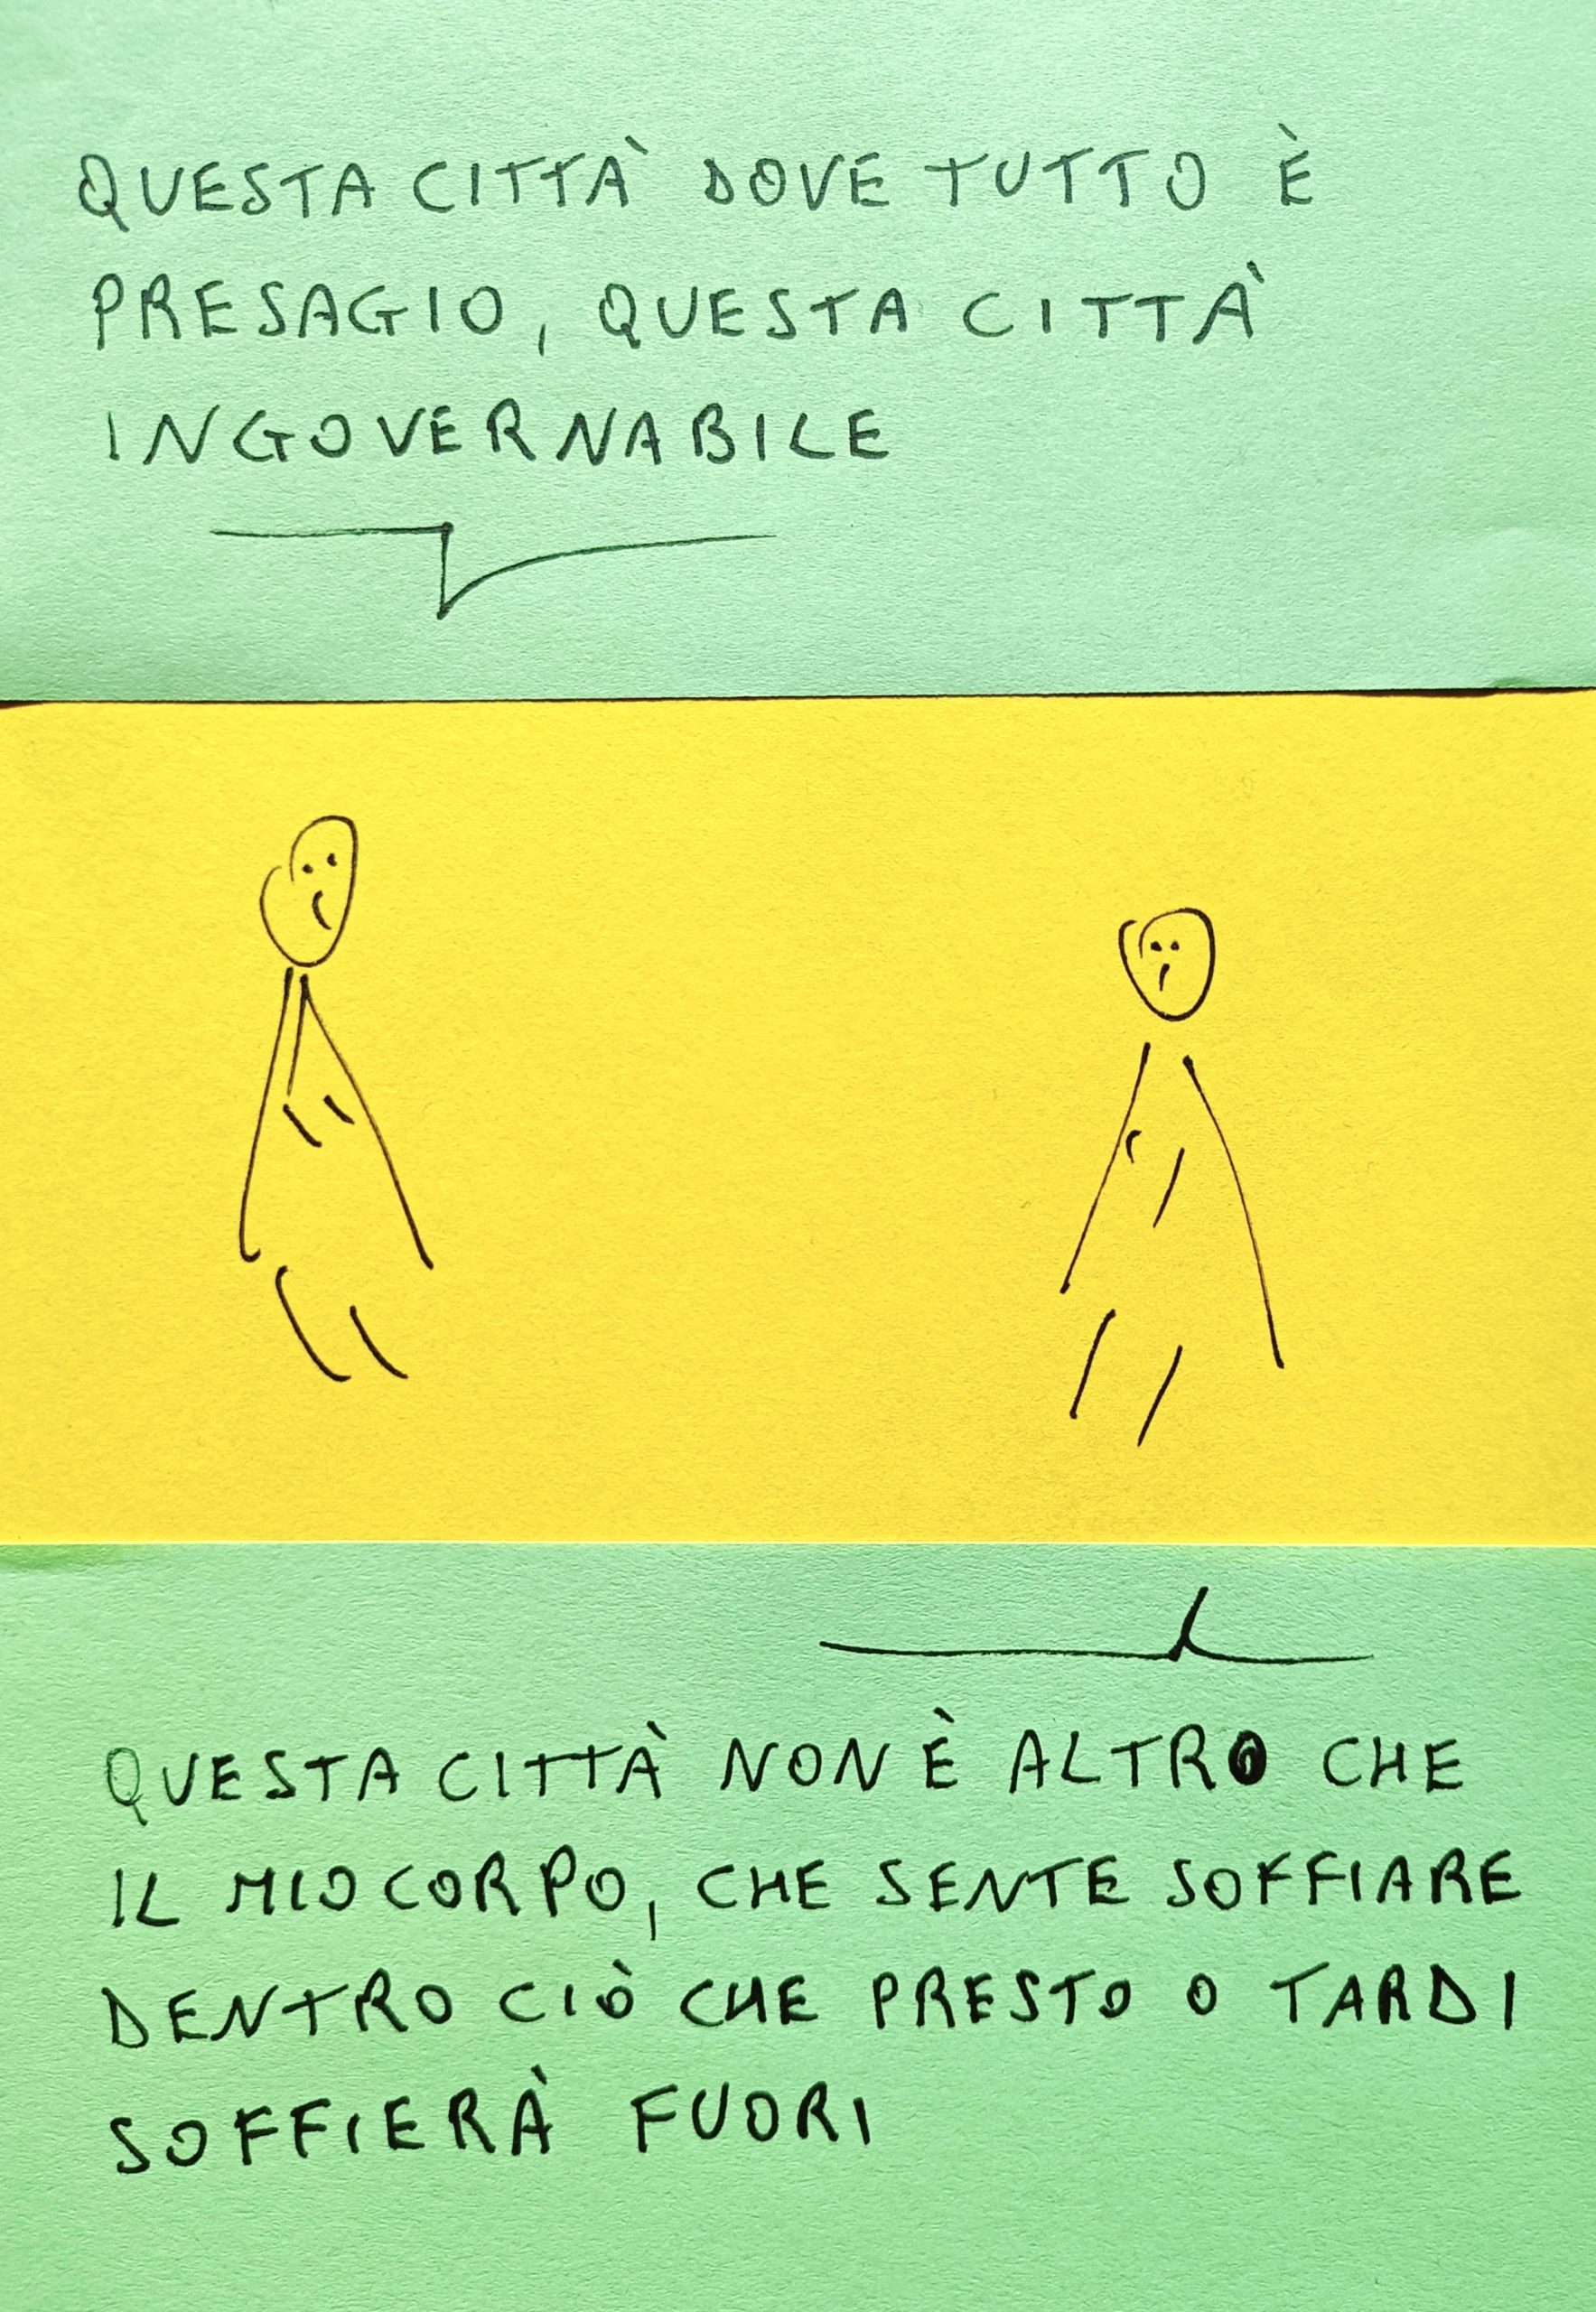 QUESTA CITTÀ DOVE TUTTO È
PRESAGIO, QUESTA CITTÀ
INGOVERNABILE
QUESTA CITTÀ NON È ALTRO CHE
IL MIO CORPO, CHE SENTE SOFFIARE
DENTRO CIÒ CHE PRESTO O TARDI
SOFFIERÀ FUORI